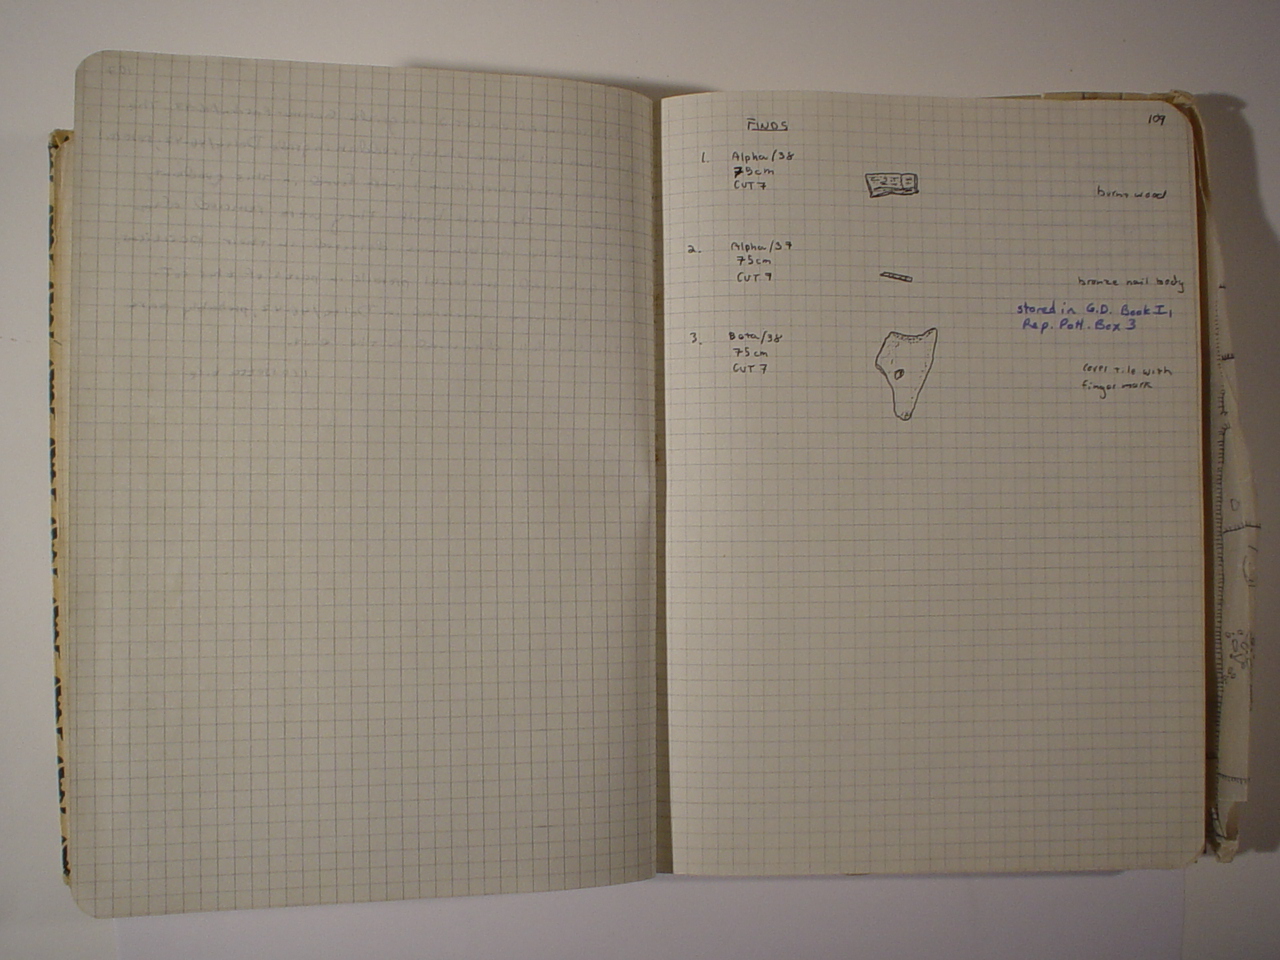 109
FINDS
1. Alpha/38
75cm
CUT 7
burnt wood
2. Alpha/37
75cm
CUT 7
bronze nail body
stored in G.D. Book I,
Rep. Pott. Box 3
3. Beta/38
75cm
CUT 7
cover tile with
finger mark